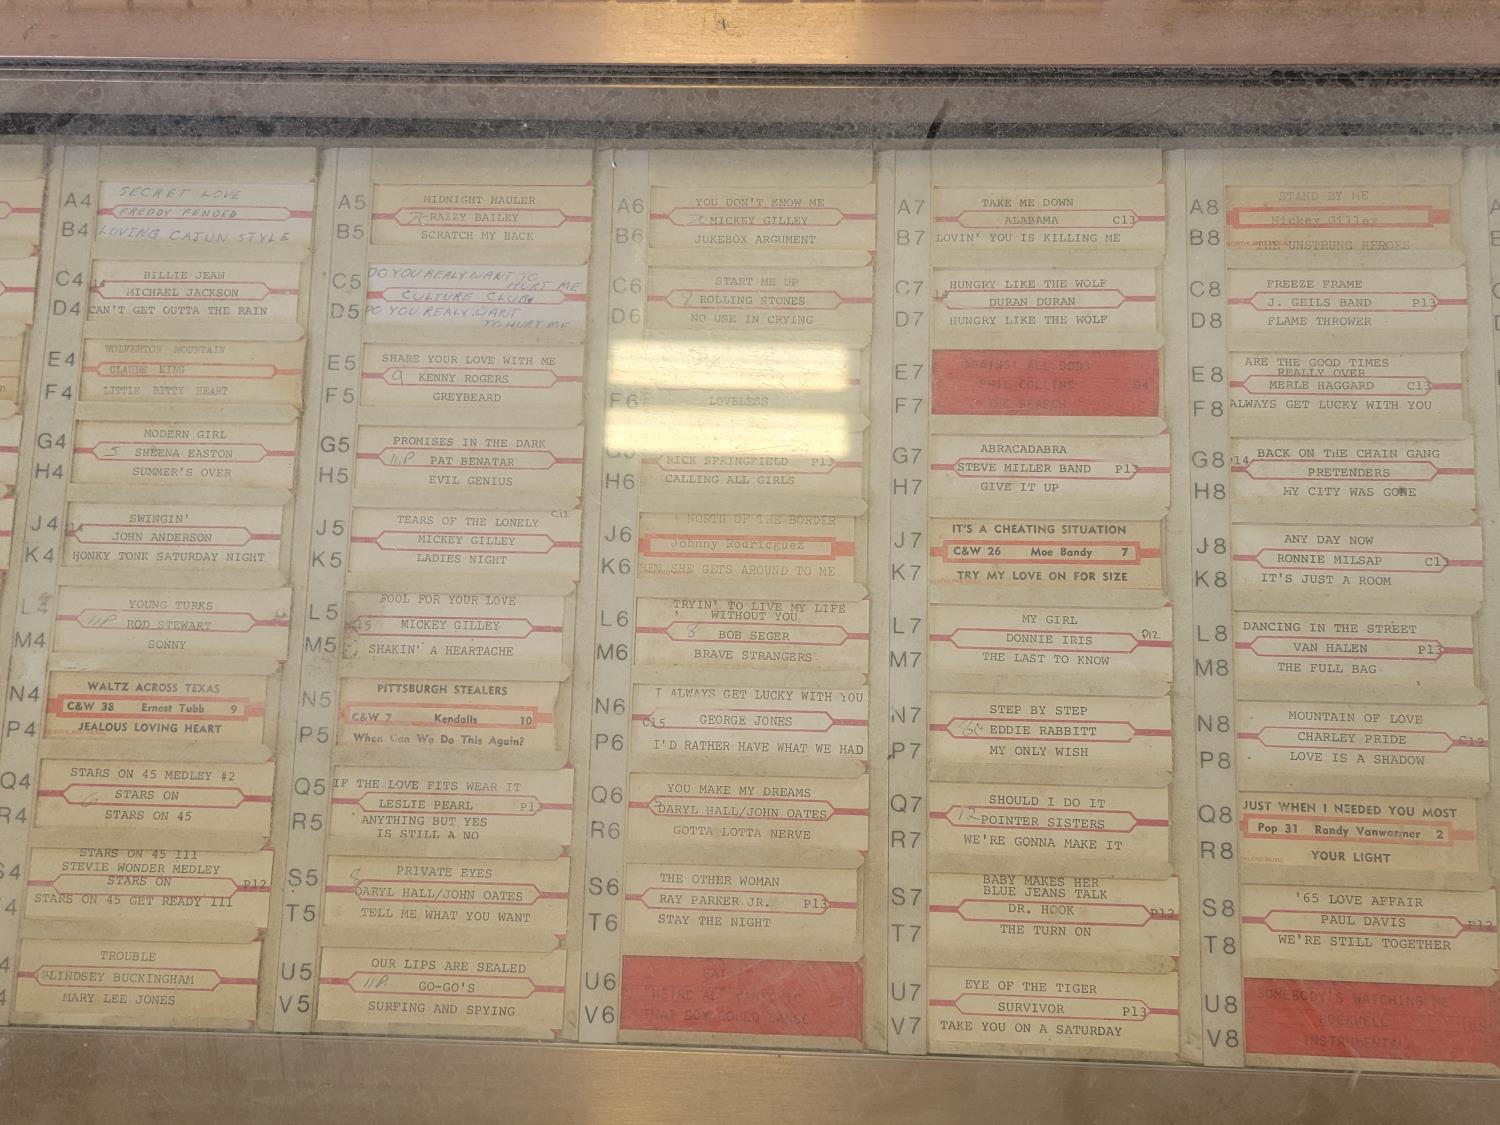 A4
SECRET LOVE
FREDDY FENDED
B4
LOVING CAJUN STYLE
C4
BILLIE JEAN
14
MICHAEL JACKSON
D4
CAN'T GET OUTTA THE RAIN
E4
WOLVERTON MOUNTAIN
CLAUDE KING
F4
LITTLE BITTY HEART
G4
MODERN GIRL
5 SHEENA EASTON
H4
SUMMER'S OVER
J4
SWINGIN'
14
JOHN ANDERSON
K4
HONKY TONK SATURDAY NIGHT
L4
YOUNG TURKS
11P ROD STEWART
M4
SONNY
N4
WALTZ ACROSS TEXAS
C&W 38 Ernest Tubb 9
P4
JEALOUS LOVING HEART
Q4
STARS ON 45 MEDLEY #2
STARS ON
6
R4
STARS ON 45
STARS ON 45 III
STEVIE WONDER MEDLEY
S4
STARS ON P12
4
STARS ON 45 GET READY III
TROUBLE
4
LINDSEY BUCKINGHAM
4
MARY LEE JONES
A5
MIDNIGHT HAULER
RAZZY BAILEY
B5
SCRATCH MY BACK
C5
DO YOU REALY WANT TO
HURT ME
CULTURE CLUB
D5
DO YOU REALY WANT
TO HURT ME
E5
SHARE YOUR LOVE WITH ME
9 KENNY ROGERS
F5
GREYBEARD
G5
PROMISES IN THE DARK
11P PAT BENATAR
H5
EVIL GENIUS
J5
TEARS OF THE LONELY C12
MICKEY GILLEY
K5
LADIES NIGHT
L5
FOOL FOR YOUR LOVE
C15 MICKEY GILLEY
M5
SHAKIN' A HEARTACHE
N5
PITTSBURGH STEALERS
C&W 7 Kendalls 10
P5
When Can We Do This Again?
Q5
IF THE LOVE FITS WEAR IT
LESLIE PEARL P13
R5
ANYTHING BUT YES
IS STILL A NO
S5
8 PRIVATE EYES
DARYL HALL/JOHN OATES
T5
TELL ME WHAT YOU WANT
U5
OUR LIPS ARE SEALED
11P GO-GO'S
V5
SURFING AND SPYING
A6
YOU DON'T KNOW ME
MICKEY GILLEY
B6
JUKEBOX ARGUMENT
C6
START ME UP
9 ROLLING STONES
D6
NO USE IN CRYING
F6
LOVELESS
G6
RICK SPRINGFIELD P13
H6
CALLING ALL GIRLS
NORTH OF THE BORDER
J6
Johnny Rodricguez
K6
HEN SHE GETS AROUND TO ME
L6
TRYIN' TO LIVE MY LIFE
WITHOUT YOU
8 BOB SEGER
M6
BRAVE STRANGERS
N6
I ALWAYS GET LUCKY WITH YOU
C15 GEORGE JONES
P6
I'D RATHER HAVE WHAT WE HAD
Q6
YOU MAKE MY DREAMS
DARYL HALL/JOHN OATES
R6
GOTTA LOTTA NERVE
S6
THE OTHER WOMAN
RAY PARKER JR. P13
T6
STAY THE NIGHT
U6
EAT IT
"WEIRD AL" YANKOVIC
V6
THAT BOY COULD DANCE
A7
TAKE ME DOWN
ALABAMA C13
B7
LOVIN' YOU IS KILLING ME
C7
HUNGRY LIKE THE WOLF
14 DURAN DURAN
D7
HUNGRY LIKE THE WOLF
E7
AGAINST ALL ODDS
PHIL COLLINS 84
F7
THE SEARCH
G7
ABRACADABRA
STEVE MILLER BAND P13
H7
GIVE IT UP
J7
IT'S A CHEATING SITUATION
C&W 26 Moe Bandy 7
K7
TRY MY LOVE ON FOR SIZE
L7
MY GIRL
DONNIE IRIS P12
M7
THE LAST TO KNOW
N7
STEP BY STEP
8c EDDIE RABBITT
P7
MY ONLY WISH
Q7
SHOULD I DO IT
12 POINTER SISTERS
R7
WE'RE GONNA MAKE IT
BABY MAKES HER
S7
BLUE JEANS TALK
DR. HOOK P12
T7
THE TURN ON
U7
EYE OF THE TIGER
SURVIVOR P13
V7
TAKE YOU ON A SATURDAY
A8
STAND BY ME
Mickey Gilley
B8
THE UNSTRUNG HEROES
C8
FREEZE FRAME
J. GEILS BAND P13
D8
FLAME THROWER
E8
ARE THE GOOD TIMES
REALLY OVER
MERLE HAGGARD C13
F8
ALWAYS GET LUCKY WITH YOU
G8
BACK ON THE CHAIN GANG
14
PRETENDERS
H8
MY CITY WAS GONE
J8
ANY DAY NOW
RONNIE MILSAP C13
K8
IT'S JUST A ROOM
L8
DANCING IN THE STREET
VAN HALEN P13
M8
THE FULL BAG
N8
MOUNTAIN OF LOVE
CHARLEY PRIDE C12
P8
LOVE IS A SHADOW
Q8
JUST WHEN I NEEDED YOU MOST
Pop 31 Randy Vanwarmer 2
R8
YOUR LIGHT
S8
'65 LOVE AFFAIR
PAUL DAVIS P12
T8
WE'RE STILL TOGETHER
U8
SOMEBODY'S WATCHING ME
ROCKWELL
V8
INSTRUMENTAL